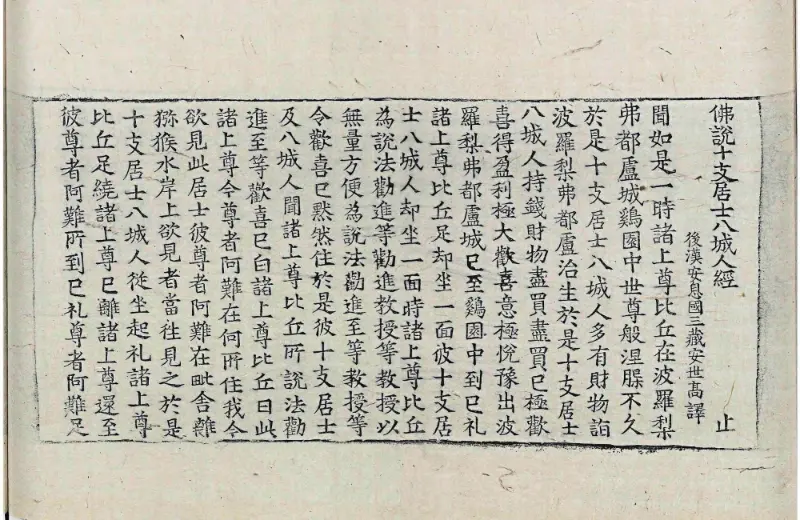 佛說十支居士八城人經 止
後漢安息國三藏安世髙譯
聞如是一時諸上尊比丘在波羅梨
弗都盧城鷄園中世尊般涅槃不久
於是十支居士八城人多有財物詣
波羅梨弗都盧治生於是十支居士
八城人持錢財物盡買盡買已極歡
喜得盈利極大歡喜意極悅豫出波
羅梨弗都盧城已至鷄園中到已礼
諸上尊比丘足却坐一面彼十支居
士八城人却坐一面時諸上尊比丘
為說法勸進等勸進教授等教授以
無量方便為說法勸進至等教授等
令歡喜已黙然住於是彼十支居士
及八城人聞諸上尊比丘所說法勸
進至等歡喜已白諸上尊比丘曰此
諸上尊令尊者阿難在何所住我今
欲見此居士彼尊者阿難在毗舍離
獼猴水岸上欲見者當往見之於是
十支居士八城人從坐起礼諸上尊
比丘足繞諸上尊已離諸上尊還至
彼尊者阿難所到已礼尊者阿難足